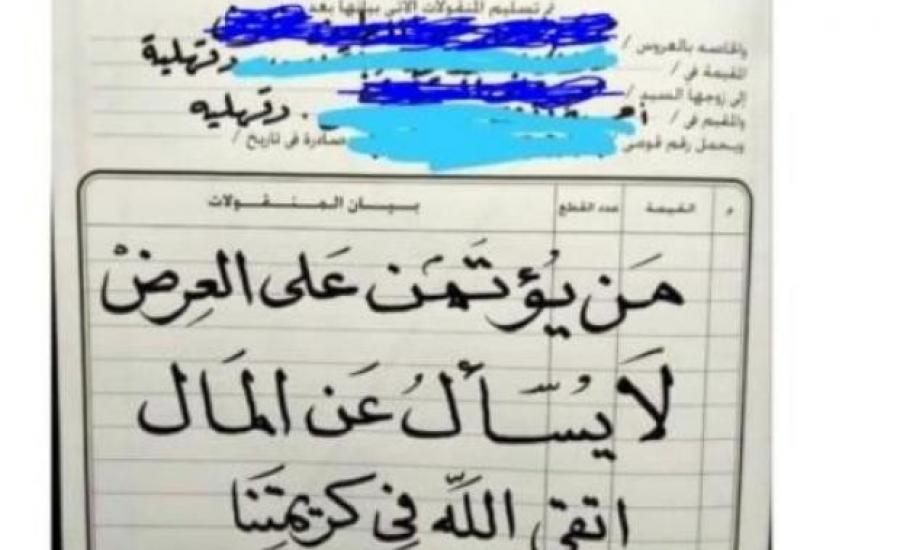 تم تسليم المنقولات الآتى بيانها بعد
والخاصه بالعروس /
المقيمة فى / دقهلية
إلى زوجها السيد /
والمقيم فى / دقهليه
ويحمل رقم قومى صادرة فى تاريخ /
م القيمة عدد القطع بيان المنقولات
مَن يُؤتَمَن عَلى العِرضْ
لَا يُسّأَلُ عَن المَال
اتقى اللَّه فِي كريمتِنَا